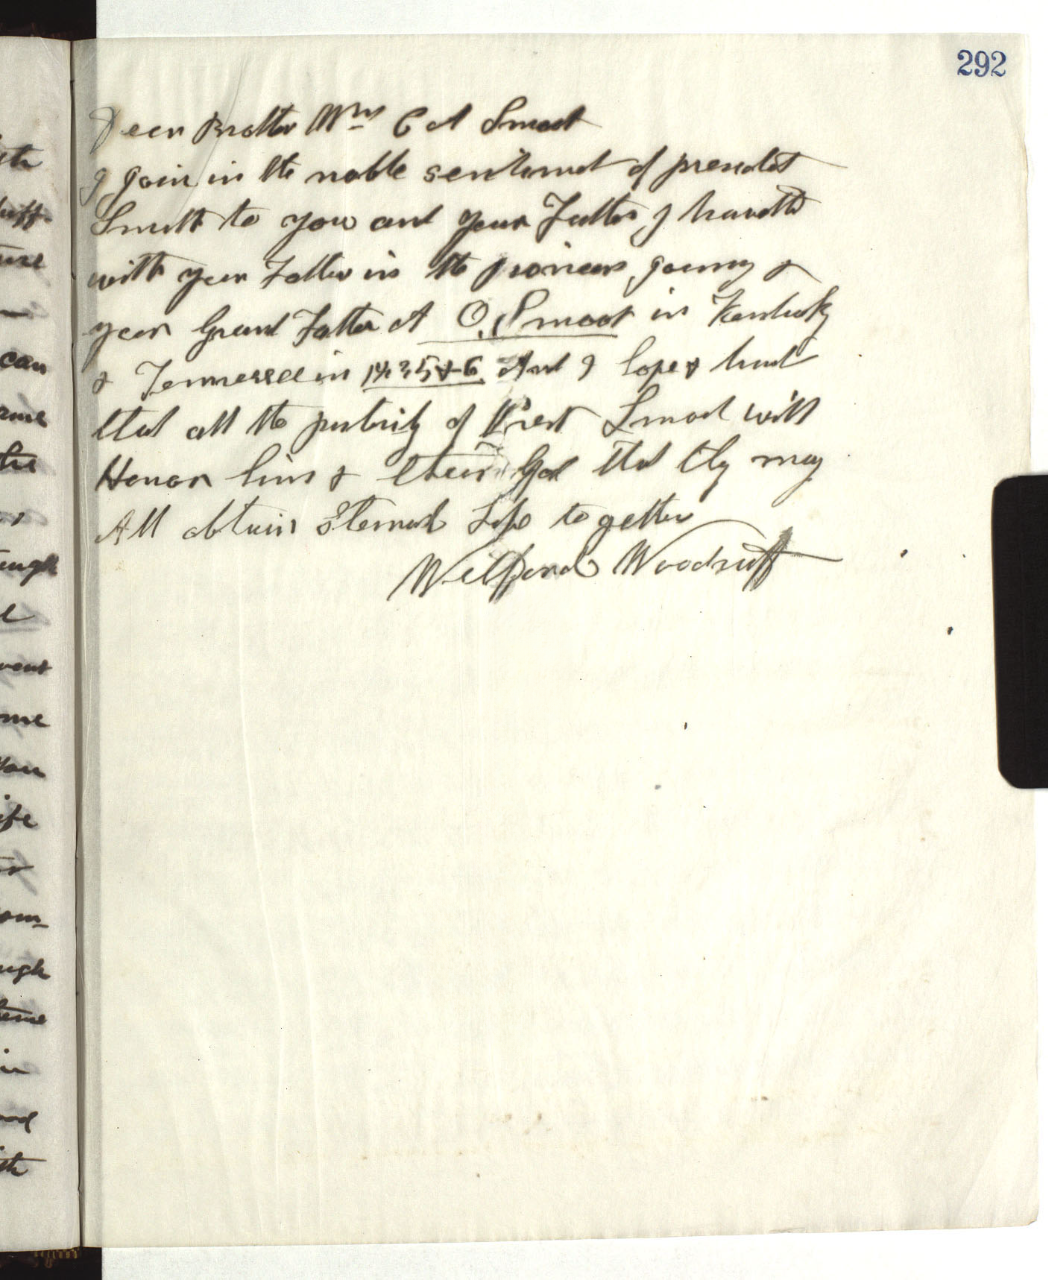 292
Dear Brother Wm C A Smoot
I join in the noble sentiment of president
Smith to you and your Father I travelled
with your Father in the pioneers journey &
your Grand Father A O. Smoot in Kentucky
& Tennessee in 1835 & 6 And I hope & trust
that all the posterity of Prest Smoot will
Honor him & their God that they may
All obtain Eternal Life together
Wilford Woodruff
can
me
you
ife
in